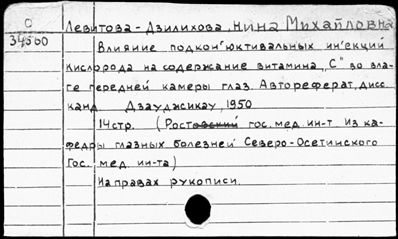 О
34560
Левитова-Дзилихова, Нина Михайловна
Влияние подкон'юктивальных ин'екций
кислорода на содержание витамина „С" во вла-
ге передней камеры глаз. Автореферат дисс.
канд. Дзауджикау, 1950
14 стр. (Ростовский гос. мед ин-т Из ка-
федры глазных болезней Северо-Осетинского
Гос. мед ин-та)
На правах рукописи.